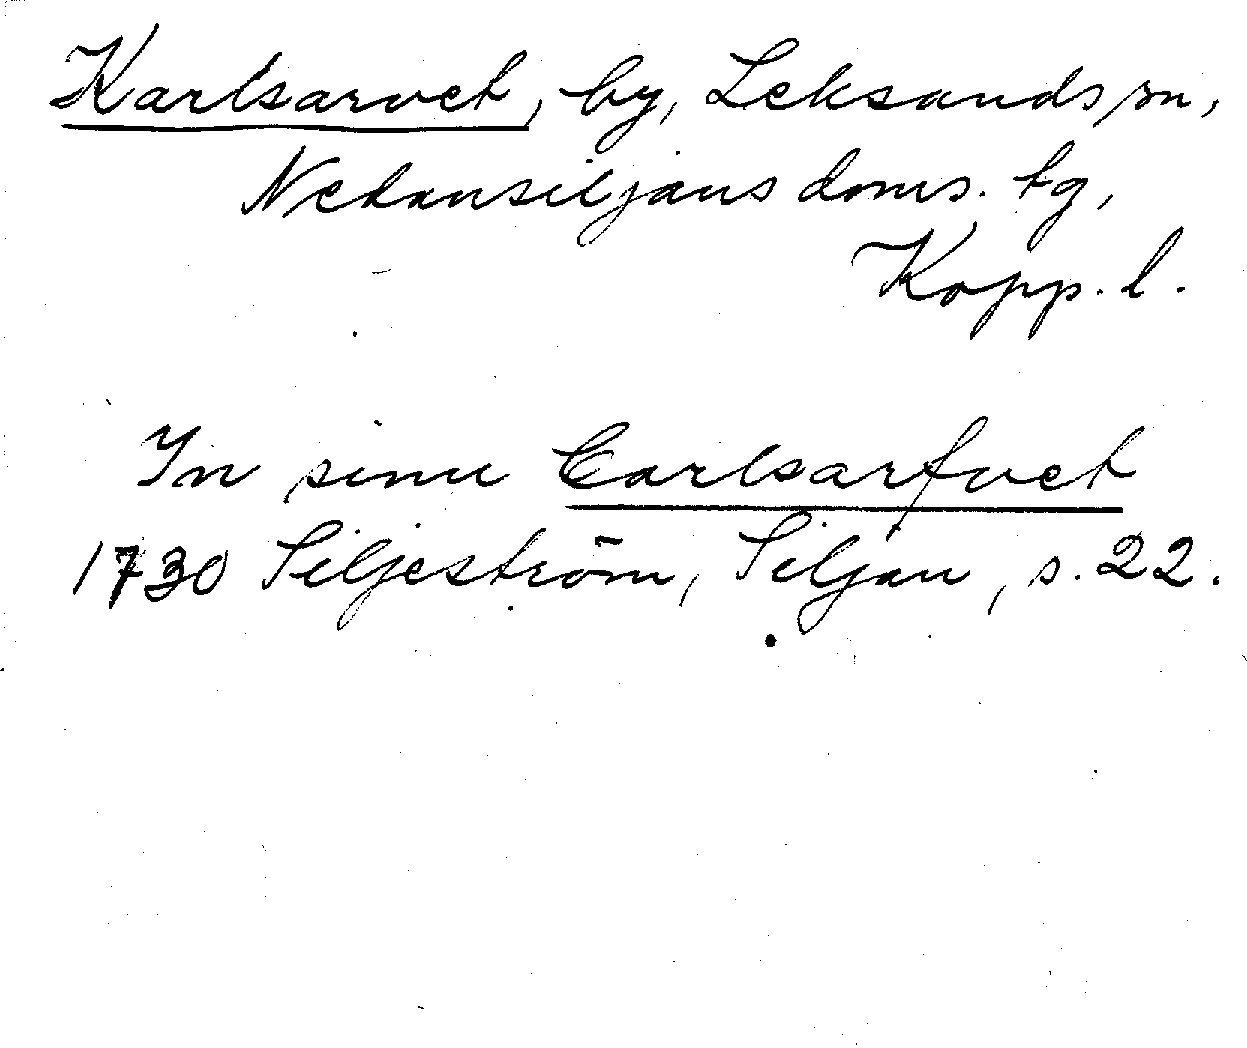 Karlsarvet, by, Leksands sn,
Nedansiljans doms. tg,
Kopp. l.
In sinu Carlsarfvet
1730 Siljeström, Siljan, s. 22.